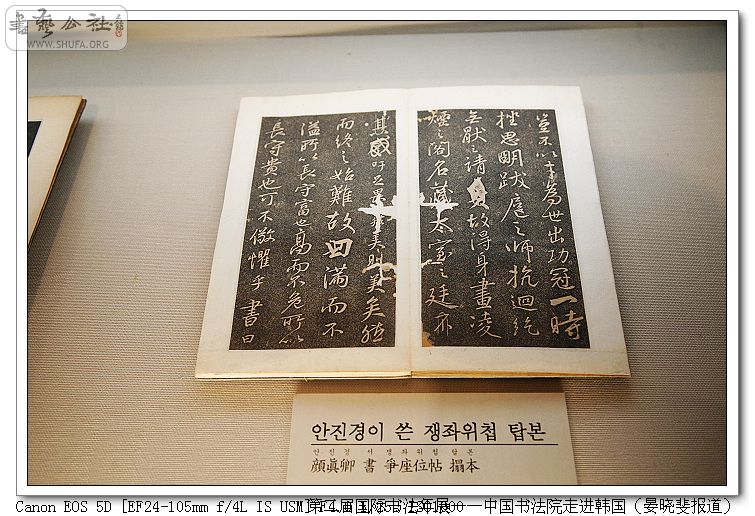 書藝公社
WWW.SHUFA.ORG
豈不以才為世出功冠一時
挫思明跋扈之師抗迴紇
無厭之請故得身畫凌
煙之閣名藏太室之廷
其威吁足畏美則美矣然
而終之始難故曰滿而不
溢所以長守富也高而不危所以
長守貴也可不儆懼乎書曰
안진경이 쓴 쟁좌위첩 탑본
안진경 서 쟁좌위첩 탑본
顔眞卿 書 爭座位帖 搨本
Canon EOS 5D [EF24-105mm f/4L IS USM] 第二届国际书法年展——中国书法院走进韩国（晏晓斐报道）